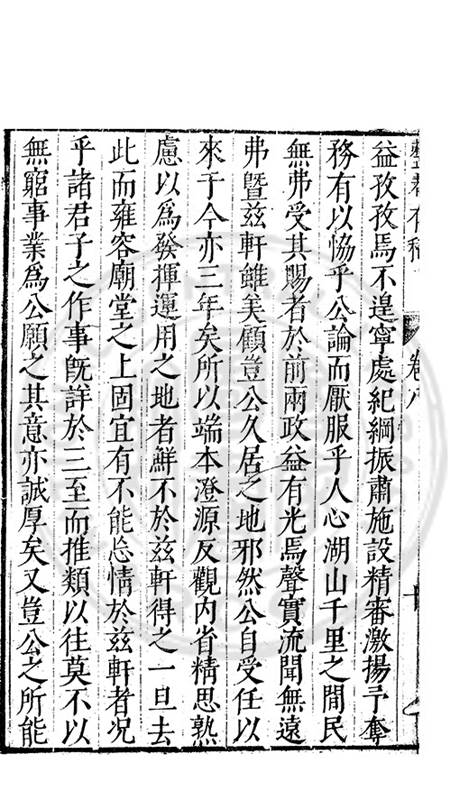 整菴存稿
卷八
益孜孜焉不遑寧處紀綱振肅施設精審激揚予奪
務有以恊乎公論而厭服乎人心湖山千里之間民
無弗受其賜者於前兩政益有光焉聲實流聞無遠
弗曁茲軒雖美顧豈公久居之地邪然公自受任以
來于今亦三年矣所以端本澄源反觀內省精思熟
慮以爲發揮運用之地者鮮不於茲軒得之一旦去
此而雍容廟堂之上固宜有不能忘情於茲軒者况
乎諸君子之作事旣詳於三至而推類以往莫不以
無窮事業爲公願之其意亦誠厚矣又豈公之所能